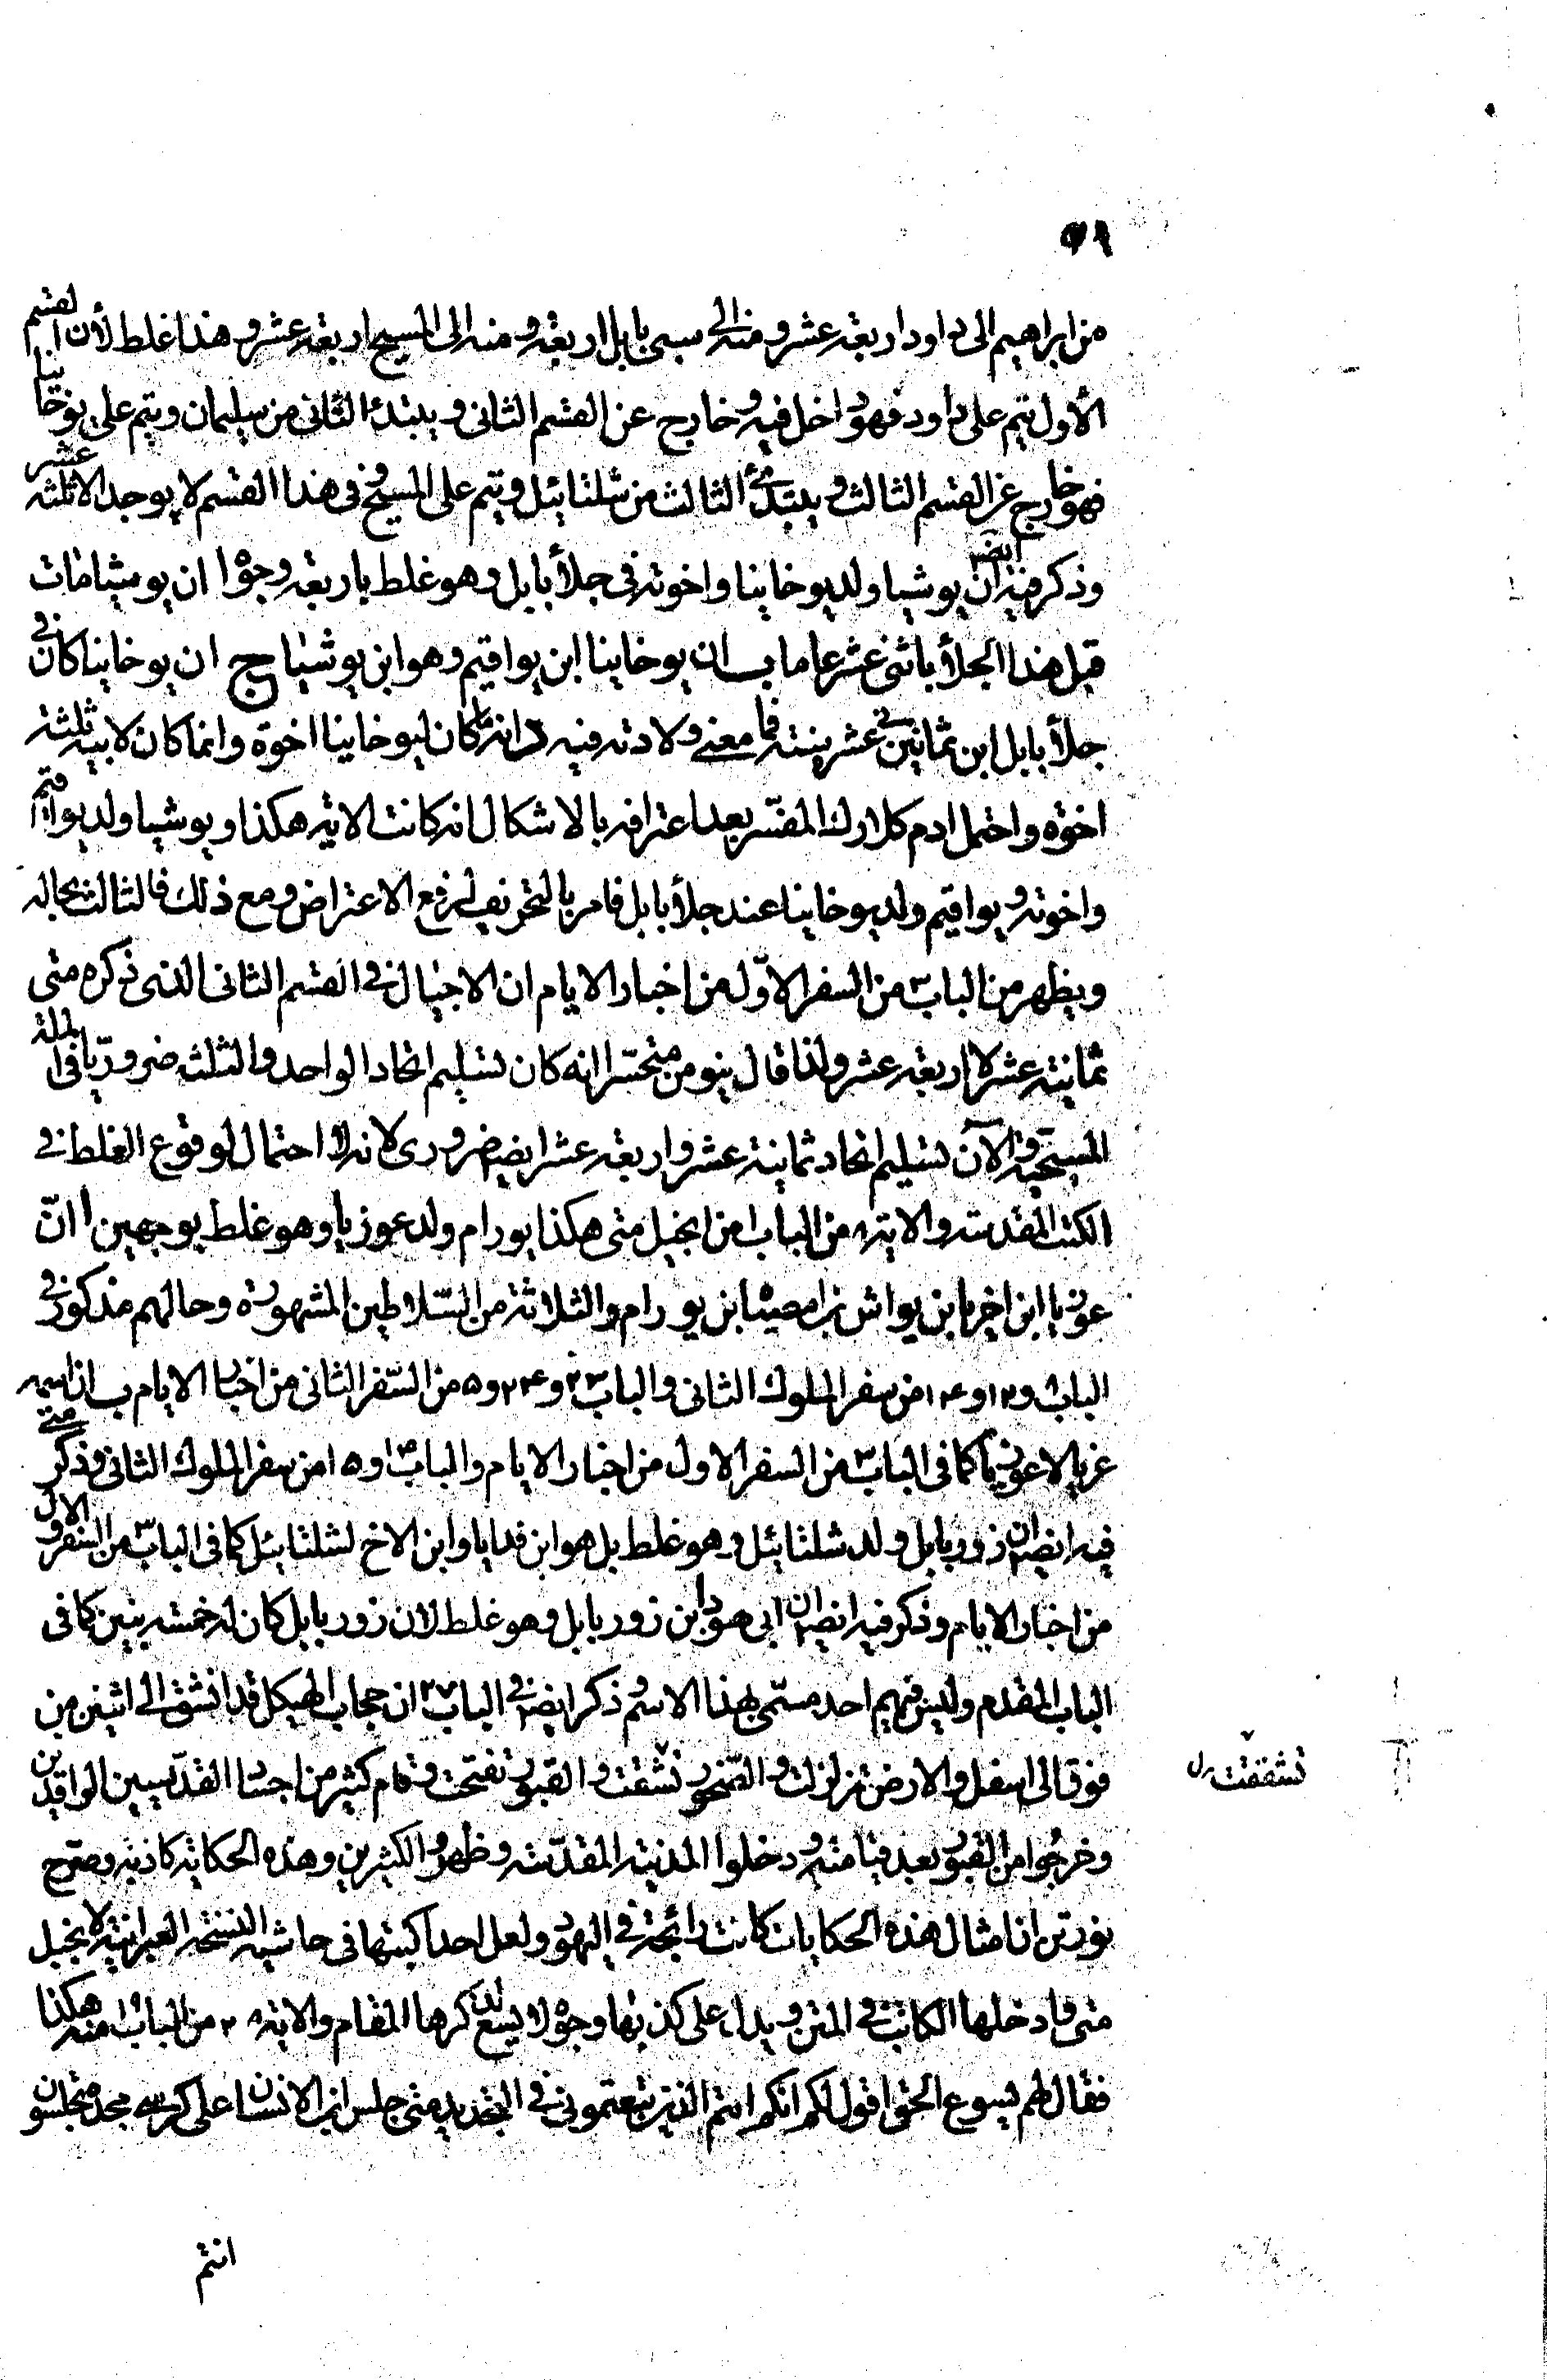 ٩١
من ابراهيم الى داود اربعة عشر و منه الى سبى بابل اربعة و منه الى المسيح اربعة عشر و هذا غلط لأن القسم
الأول يتم على داود فهو داخل فيه و خارج عن القسم الثانى و يبتدئ الثانى من سليمان و يتم على يوخانيا
فهو خارج عن القسم الثالث و يبتدئ الثالث من شلتائيل و يتم على المسيح و فى هذا القسم لا يوجد الا ثلثة عشر
و ذكر فيه ايضا ان يوشيا ولد يوخانيا و اخوته فى جلأ بابل و هو غلط باربعة وجوه ا ان يوشيا مات
قبل هذا الجلأ باثنى عشر عاما ب ان يوخانيا ابن يواقيم و هو ابن يوشيا ج ان يوخانيا كان فى
جلأ بابل ابن ثمانى عشر سنة فما معنى ولادته فيه د انه ما كان ليوخانيا اخوة و انما كان لابيه ثلثة
اخوة و احتمل ادم كلارك المفسر بعد اعترافه بالاشكال انه كانت الاية هكذا و يوشيا ولد يواقيم
و اخوته و يواقيم ولد يوخانيا عند جلأ بابل فامر بالتحريف لرفع الاعتراض و مع ذلك فالثالث بحاله
و يظهر من الباب ٣ من السفر الاول من اخبار الايام ان الاجيال فى القسم الثانى الذى ذكره متى
ثمانية عشر لا اربعة عشر و لذا قال نيومن متحسرا انه كان تسليم اتحاد الواحد و الثلث ضروريا فى الملة
المسيحية و الآن تسليم اتحاد ثمانية عشر و اربعة عشر ايضا ضرورى لانه لا احتمال لوقوع الغلط فى
الكتب المقدسة و الاية ٨ من الباب ا من انجيل متى هكذا يورام ولد عوزيا و هو غلط بوجهين ا انّ
عوزيا ابن اخزيا بن يواش بن امصيا بن يورام و الثلاثة من السلاطين المشهورة و حالهم مذكور فى
الباب ٨ و ١٢ و ١٤ من سفر الملوك الثانى و الباب ٢٢ و ٢٤ و ٢٥ من السفر الثانى من اخبار الايام ب ان اسمه
عزيا لا عوزيا كما فى الباب ٣ من السفر الاول من اخبار الايام و الباب ١٤ و ١٥ من سفر الملوك الثانى و ذكر متى
فيه ايضا ان زوربابل ولد شلتائيل و هو غلط بل هو ابن فدايا و ابن الاخ لشلتائيل كما فى الباب ٣ من السفر الاول
من اخبار الايام و ذكر فيه ايضا ان ابى هود ابن زوربابل و هو غلط لان زوربابل كان له خمسة بنين كما فى
الباب المقدم و ليس فيهم احد مسمى بهذا الاسم و ذكر ايضا فى الباب ٢٧ ان حجاب الهيكل قد انشق الى اثنين من
فوق الى اسفل و الارض تزلزلت و الصخور تشقت و القبور تفتحت و قام كثير من اجساد القديسين الراقدين
تشققت
و خرجوا من القبور بعد قيامته و دخلوا المدينة المقدسة و ظهروا لكثيرين و هذه الحكاية كاذبة و صرح
نورتن ان امثال هذه الحكايات كانت رائجة فى اليهود و لعل احدا كتبها فى حاشية النسخة العبرانية لانجيل
متى فادخلها الكاتب فى المتن و يدل على كذبها وجوه لا يسع لذكرها المقام و الاية ٢٨ من الباب ١٩ منه هكذا
فقال لهم يسوع الحق اقول لكم انكم انتم الذين تبعتمونى فى التجديد متى جلس ابن الانسان على كرسى مجده تجلسون
انتم